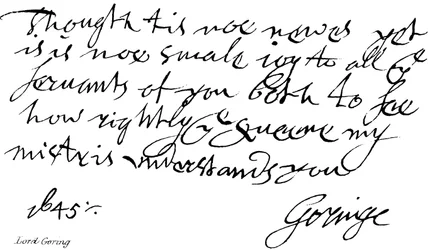 Though t tis noe newes yet
is is noe smale ioy to all ye
servants of you both to see
how rightly ye queene my
mistris vnderstands you
1645
Goringe
Lord Goring